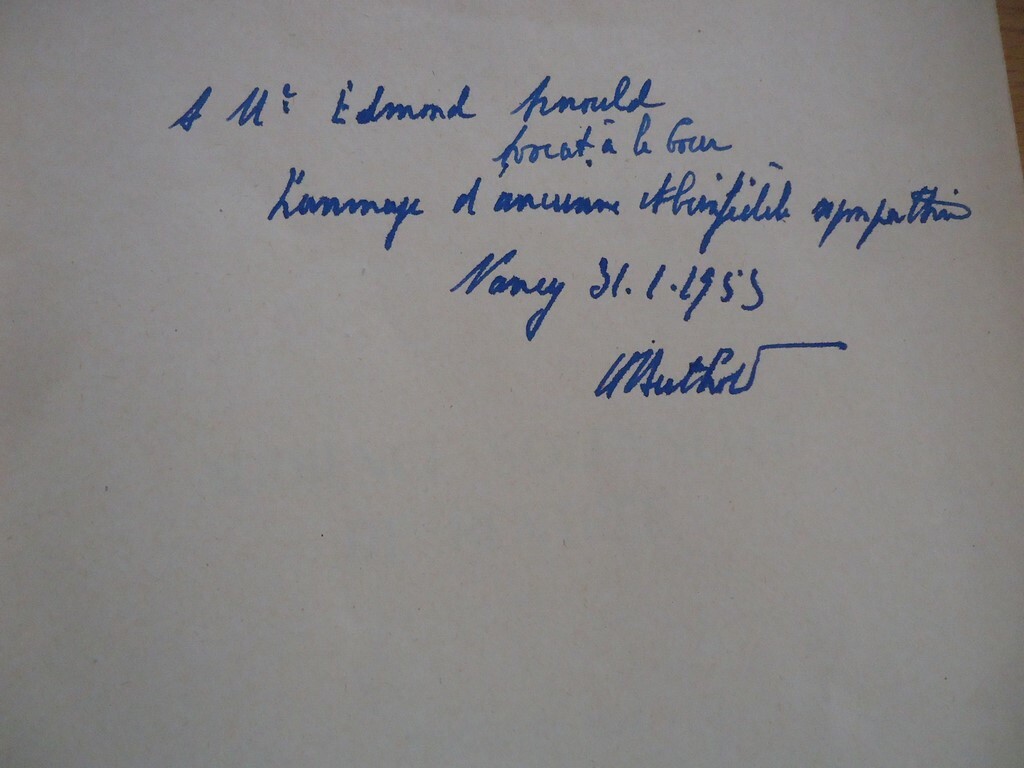 A Mr Edmond Arnould
Avocat à la Cour
L'hommage d'ancienne et bien fidèle sympathie
Nancy 31.1.1953